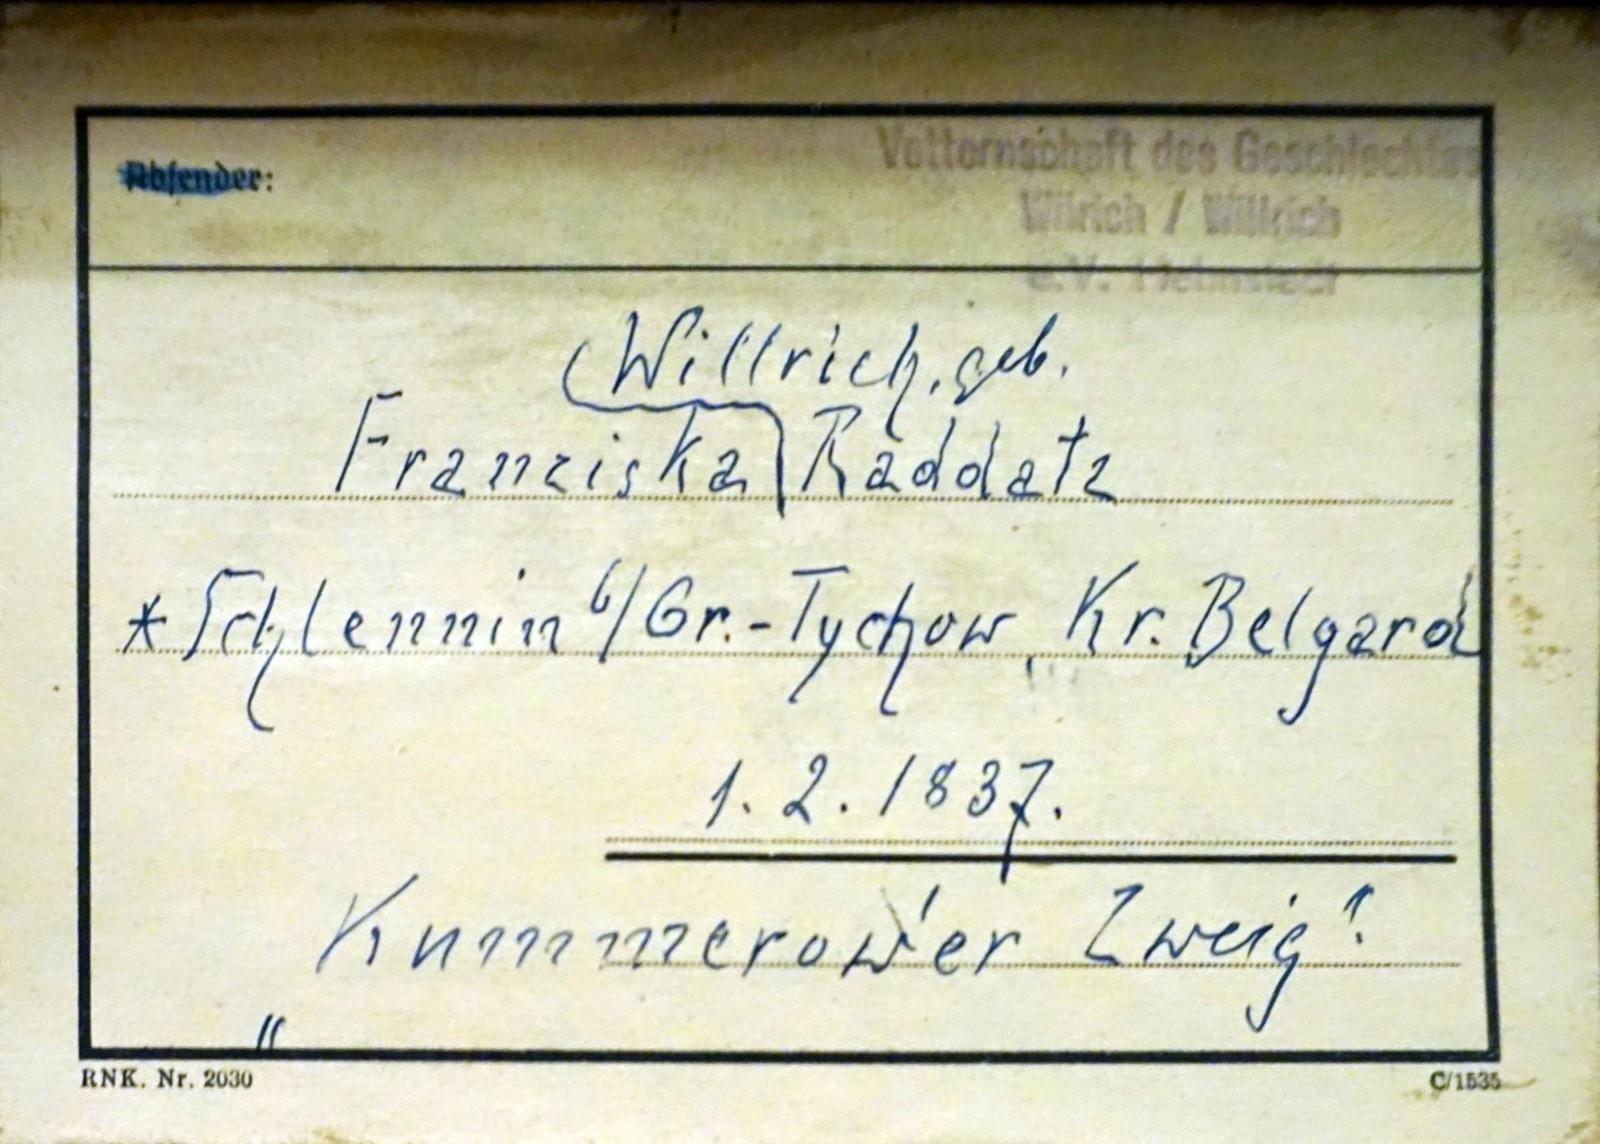 Absender:
Vetternschaft des Geschlechtes
Willrich / Willrich
e.V.
Willrich, geb.
Franziska Raddatz
* Schlennin b/Gr.-Tychow, Kr. Belgard
1. 2. 1837.
„Kummerow'er Zweig“
RNK. Nr. 2030
C/1535